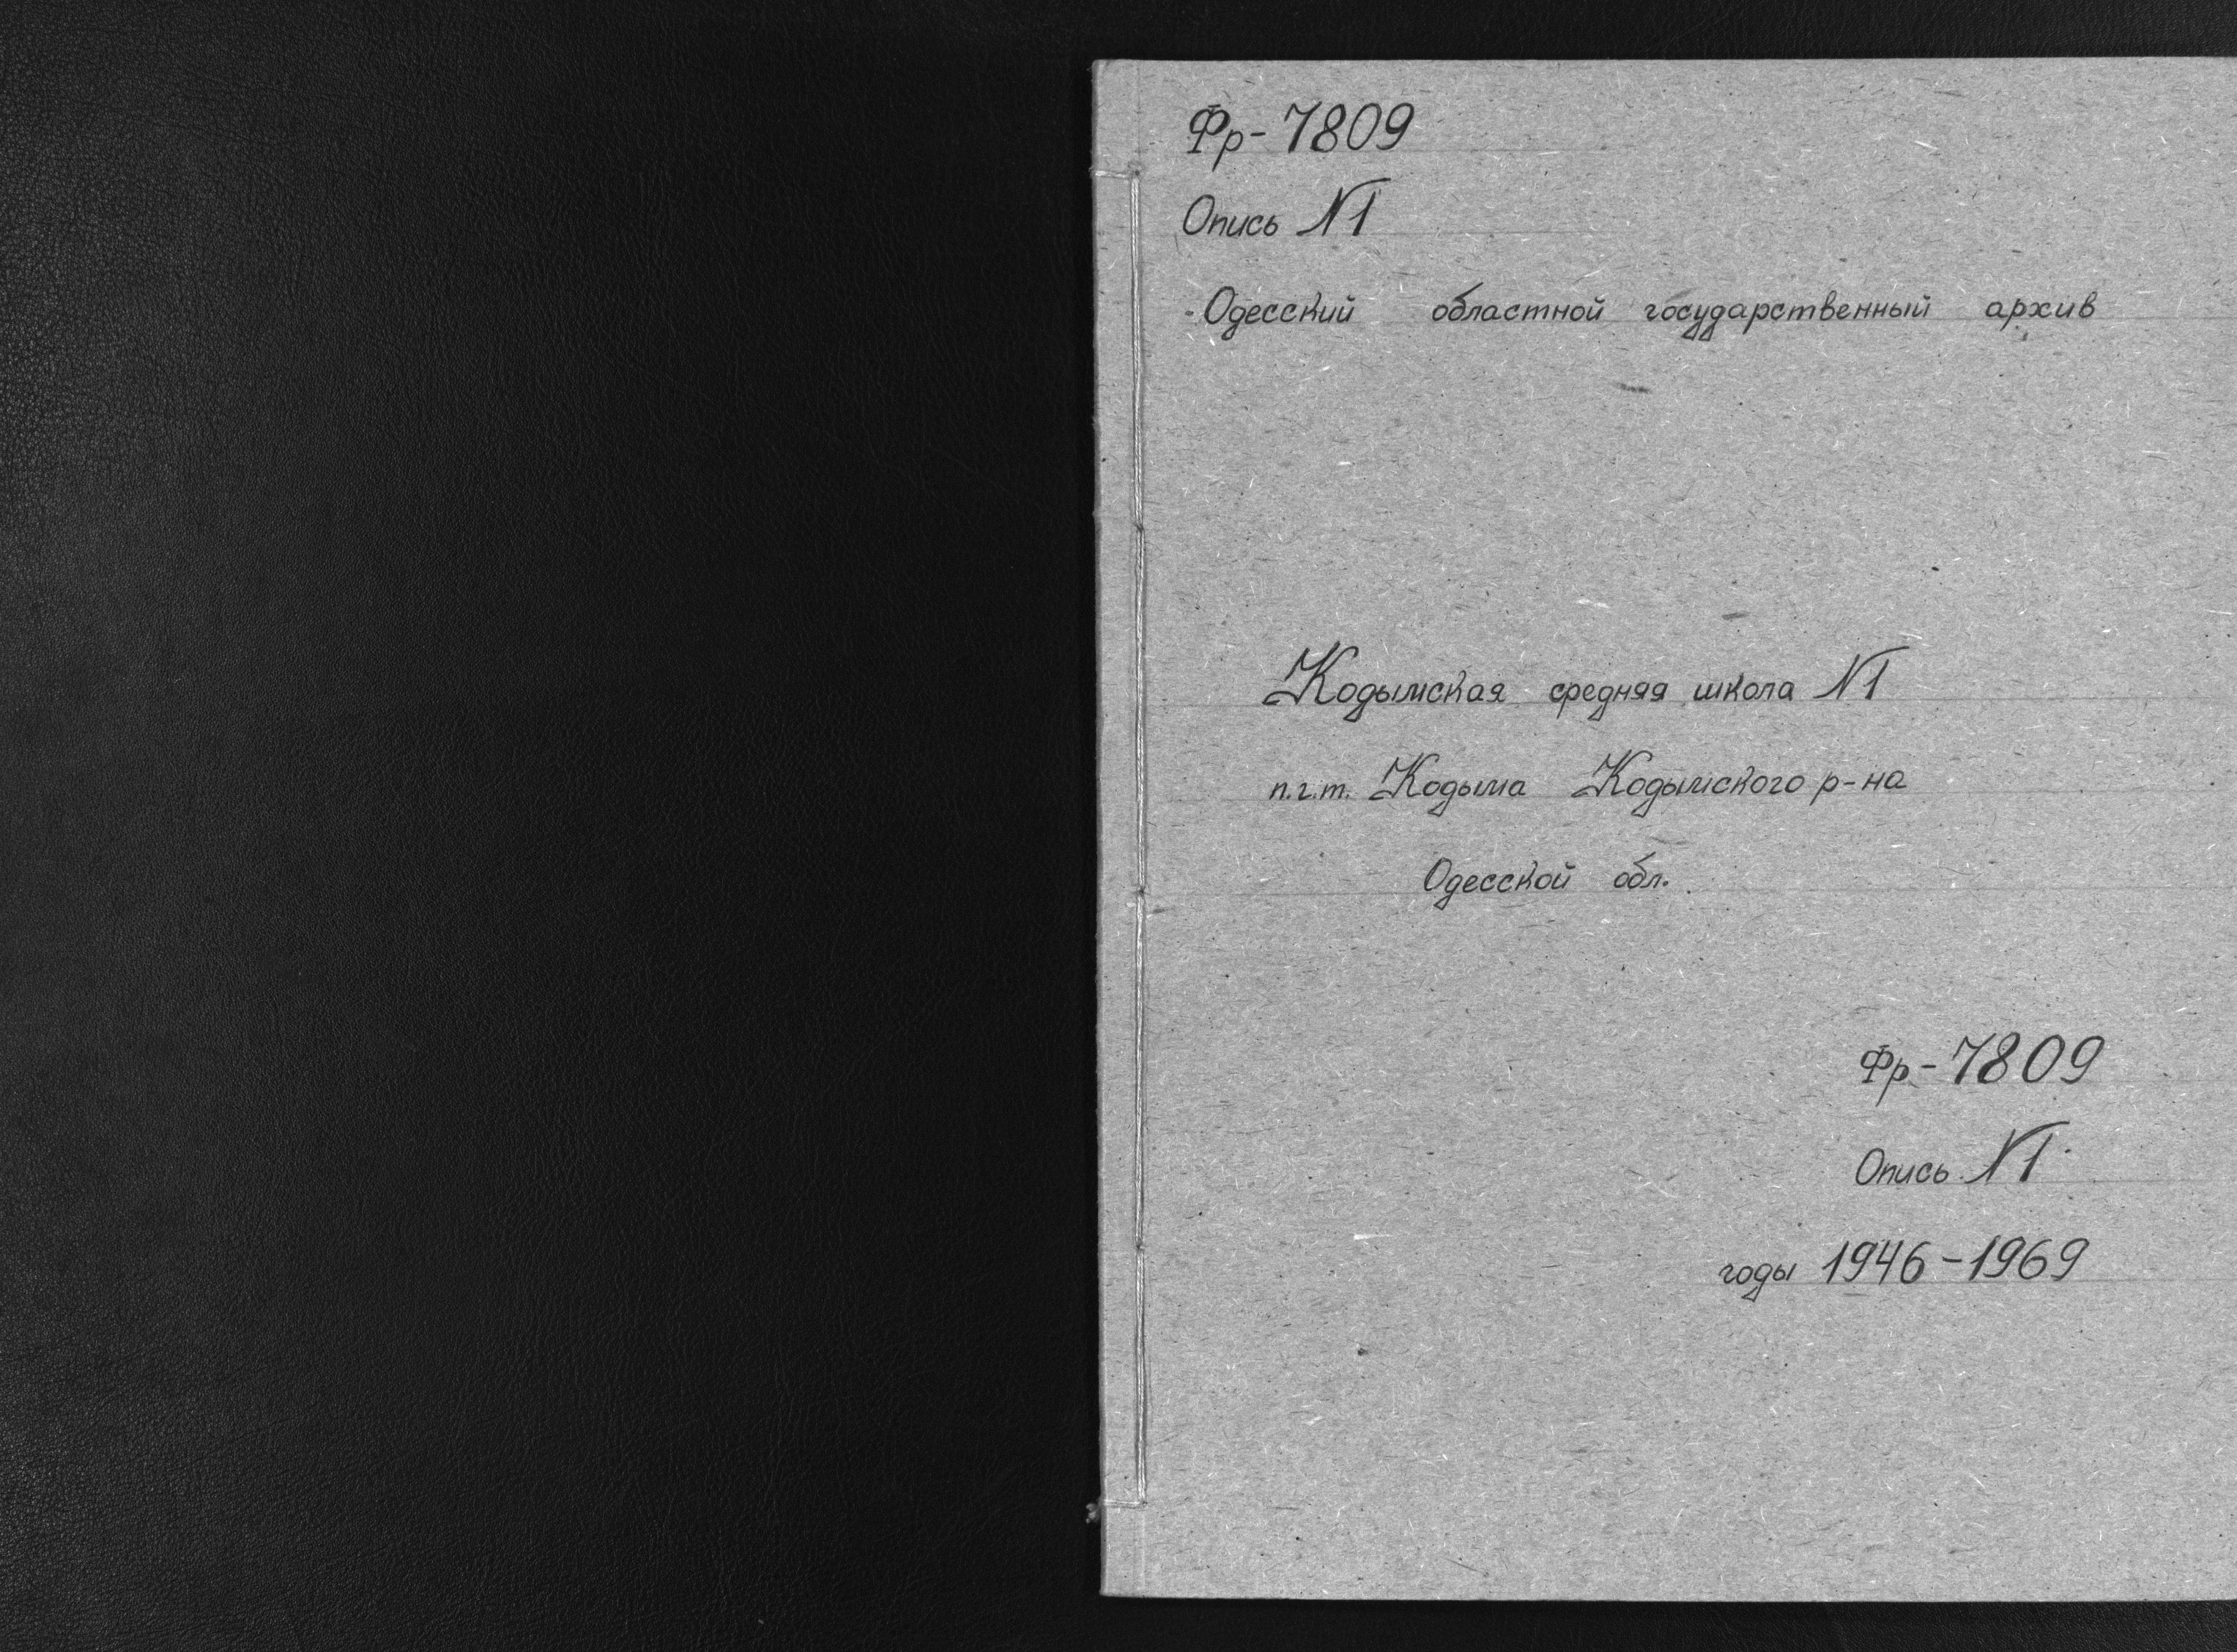 Фр-7809
Опись N1
Одесский областной государственный архив
Кодымская средняя школа N1
п.г.т. Кодыма Кодымского р-на
Одесской обл.
Фр-7809
Опись N1
годы 1946-1969